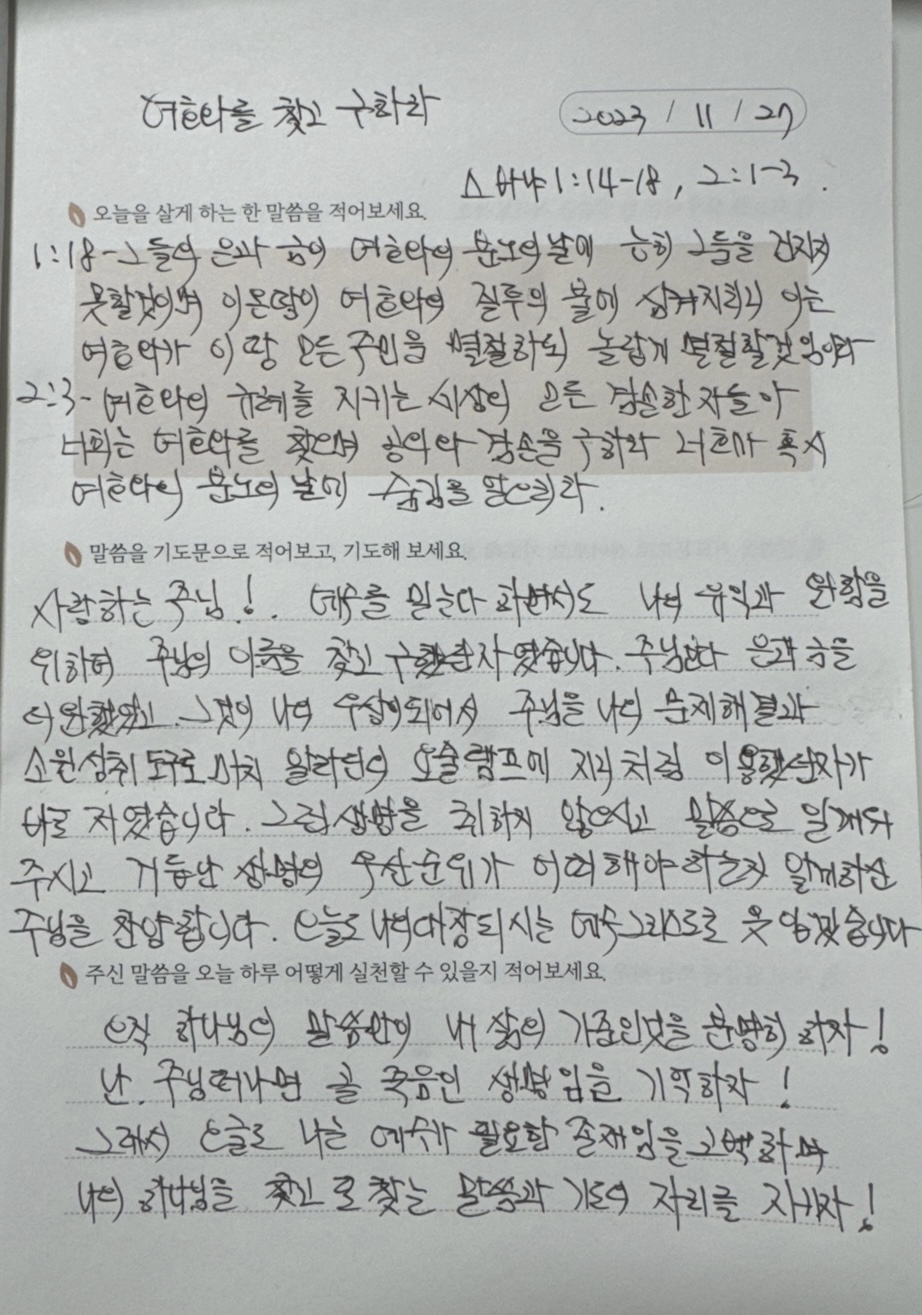 여호와를 찾고 구하라
2023 / 11 / 27
스바냐 1:14-18, 2:1-3.
오늘을 살게 하는 한 말씀을 적어보세요.
1:18- 그들의 은과 금이 여호와의 분노의 날에 능히 그들을 건지지
못할것이며 이 온땅이 여호와의 질투의 불에 삼켜지리니 이는
여호와가 이 땅 모든 주민을 멸절하되 놀랍게 멸절할것임이라
2:3- 여호와의 규례를 지키는 세상의 모든 겸손한 자들아
너희는 여호와를 찾으며 공의와 겸손을 구하라 너희가 혹시
여호와의 분노의 날에 숨김을 얻으리라.
말씀을 기도문으로 적어보고, 기도해 보세요.
사랑하는 주님!. 예수를 믿는다 하면서도 나의 유익과 안함을
위하여 주님의 이름을 찾고 구했는자였습니다. 주님보다 은과 금을
더 원했었고 그것이 나의 우상이 되어서 주님을 나의 문제해결과
소원성취 도구로 마치 알라딘의 요술램프에 지니처럼 이용했는자가
바로 저였습니다. 그럼 생명을 취하지 않으시고 말씀으로 일깨워
주시고 거듭난 생명의 우선순위가 어떠해야 하는지 알게하신
주님을 찬양합니다. 오늘도 나의 대장되시는 예수그리스도로 옷 입겠습니다
주신 말씀을 오늘 하루 어떻게 실천할 수 있을지 적어보세요.
오직 하나님의 말씀만이 내 삶의 기준인것을 분명히 하자!
난, 주님떠나면 곧 죽음인 생명임을 기억하자!
그래서 오늘도 나는 예수가 필요한 존재임을 고백하며
나의 하나님을 찾고 또 찾는 말씀과 기도의 자리를 지키자!